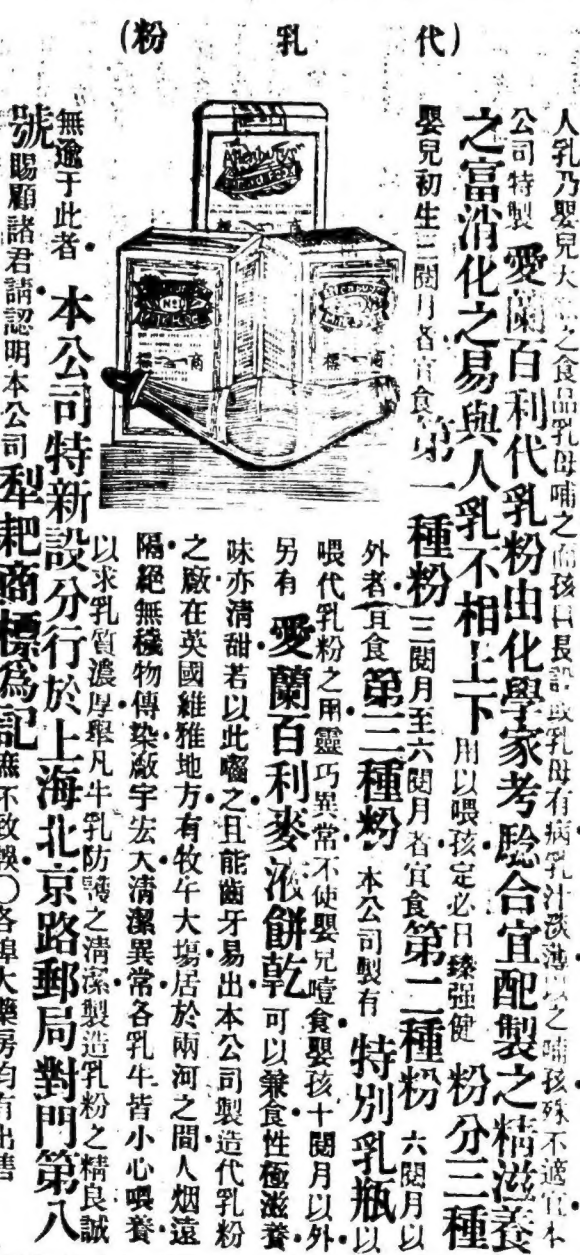 (代乳粉)
人乃嬰兒大之食品乳母哺之而孩日長設或乳母有病乳汁淡薄以之哺孩殊不適宜本
公司特製 愛蘭百利代乳粉由化學家考騐合宜配製之精滋養
之富消化之易與人乳不相上下 用以喂孩定必日臻强健 粉分三種
嬰兒初生三閱月者宜食 第一種粉 三閱月至六閱月者宜食 第二種粉 六閱月以
外者宜食 第三種粉 本公司製有 特別乳瓶 以
喂代乳粉之用靈巧異常不使嬰兒噎食嬰孩十閱月以外
另有 愛蘭百利麥液餅乾 可以兼食性極滋養
味亦清甜若以此囓之且能齒牙易出本公司製造代乳粉
之廠在英國維雅地方有牧牛大塲居於兩河之間人烟遠
隔絕無穢物傳染廠宇宏大清潔異常各乳牛皆小心喂養
以求乳質濃厚舉凡牛乳防護之清潔製造乳粉之精良誠
無逾于此者 本公司特新設分行於上海北京路郵局對門第八
號 賜顧諸君請認明本公司 犁耙商標為記 庶不致誤〇各埠大藥房均有出售
商標
商標